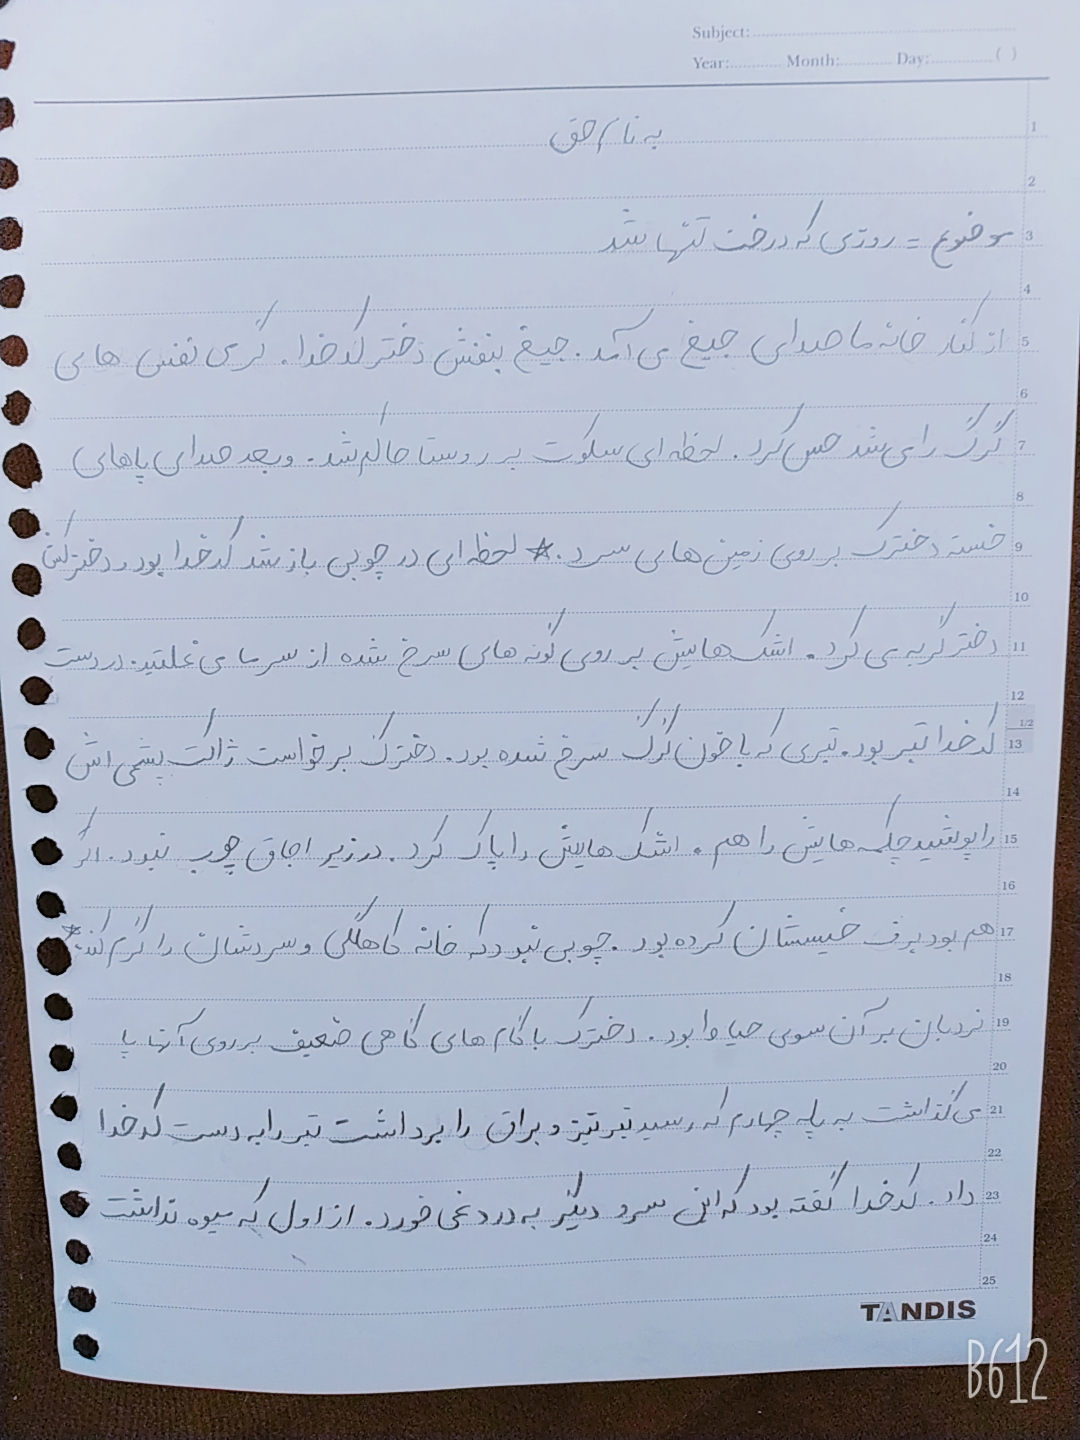 Subject:
Year: Month: Day: ( )
1
به نام حق
2
3 موضوع = روزی که درخت تنها شد
4
5 از کنار خانه ما صدای جیغ می آمد. جیغ بنفش دختر کدخدا. گرمی نفس های
6
7 گرگ را می شد حس کرد. لحظه ای سکوت بر روستا حاکم شد. و بعد صدای پاهای
8
9 خسته دخترک بر روی زمین های سرد. * لحظه ای در چوبی باز شد کدخدا بود و دخترکش
10
11 دختر گریه می کرد. اشک هایش بر روی گونه های سرخ شده از سرما می غلتید. در دست
12
1/2
13 کدخدا تبر بود. تبری که با خون گرگ سرخ شده بود. دخترک برخواست ژاکت پشمی اش
14
15 را پوشید چکمه هایش را هم. اشک هایش را پاک کرد. در زیر اجاق چوب نبود. اگر
16
17 هم بود برف خیسشان کرده بود. چوبی نبود که خانه کاهگلی و سردشان را گرم کند. *
18
19 نردبان بر آن سوی حیاط بود. دخترک با گام های گاهی ضعیف بر روی آنها پا
20
21 می گذاشت به پله چهارم که رسید تبر تیز و براق را برداشت تبر را به دست کدخدا
22
23 داد. کدخدا گفته بود که این سرو دیگر به درد نمی خورد. از اول که میوه نداشت
24
25
TANDIS
B612